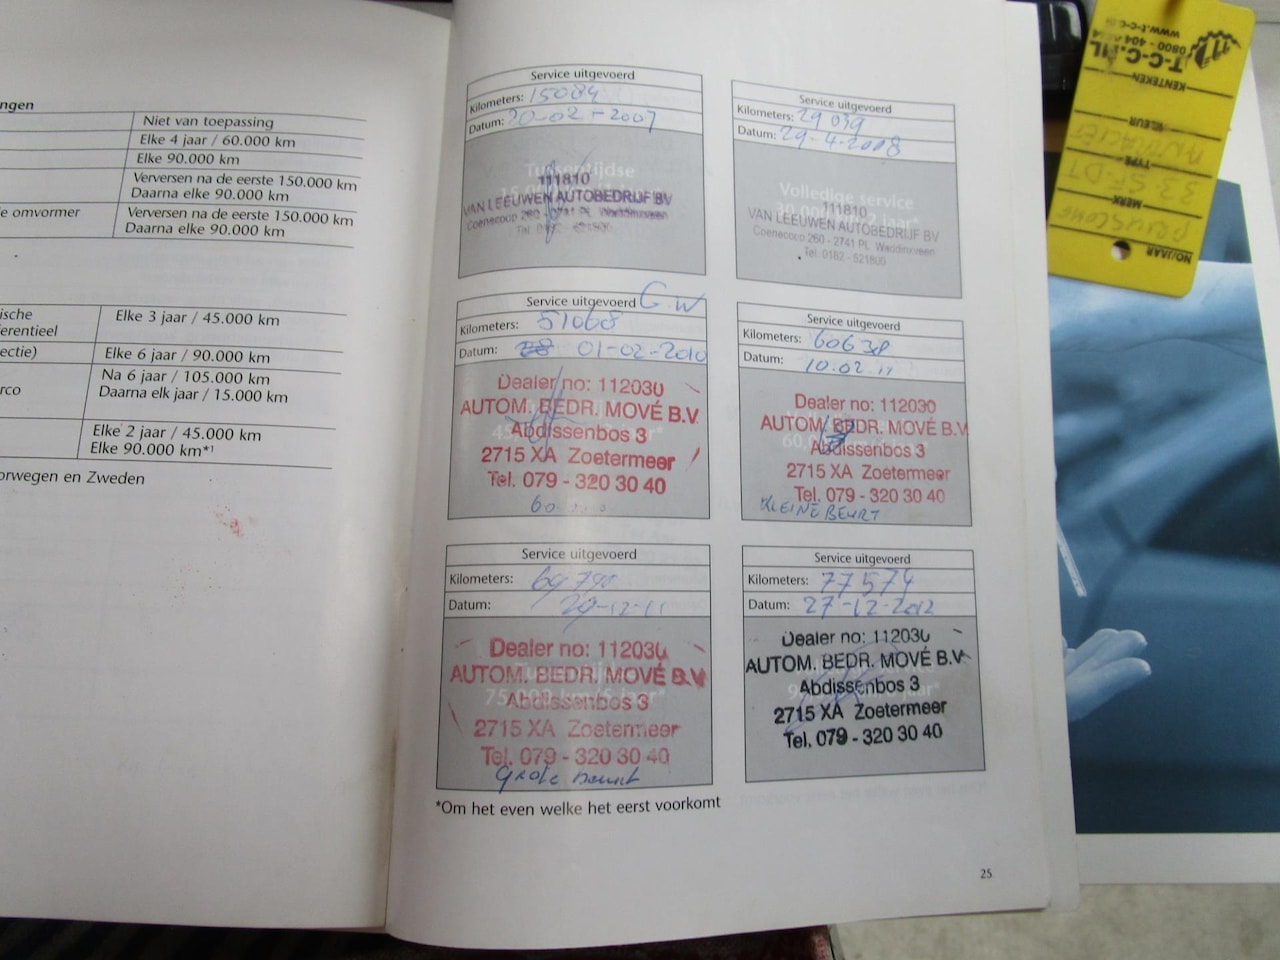 ngen
Niet van toepassing
Elke 4 jaar / 60.000 km
Elke 90.000 km
Verversen na de eerste 150.000 km
Daarna elke 90.000 km
e omvormer
Verversen na de eerste 150.000 km
Daarna elke 90.000 km
ische
erentieel
Elke 3 jaar / 45.000 km
ectie)
Elke 6 jaar / 90.000 km
rco
Na 6 jaar / 105.000 km
Daarna elk jaar / 15.000 km
Elke 2 jaar / 45.000 km
Elke 90.000 km*¹
orwegen en Zweden
Service uitgevoerd
Kilometers: 15084
Datum: 20-02-2007
Tussentijdse
111810
VAN LEEUWEN AUTOBEDRIJF BV
Coenecoop 260 - 2741 PL Waddinxveen
Service uitgevoerd
Kilometers: 29 039
Datum: 29-4-2008
Volledige service
111810
VAN LEEUWEN AUTOBEDRIJF BV
Coenecoop 260 - 2741 PL Waddinxveen
Tel. 0182 - 521800
Service uitgevoerd G.W
Kilometers: 51068
Datum: 01-02-2010
Dealer no: 112030
AUTOM. BEDR. MOVÉ B.V.
Abdissenbos 3
2715 XA Zoetermeer
Tel. 079 - 320 30 40
Service uitgevoerd
Kilometers: 60638
Datum: 10.02.11
Dealer no: 112030
AUTOM. BEDR. MOVÉ B.V.
Abdissenbos 3
2715 XA Zoetermeer
Tel. 079 - 320 30 40
KLEINE BEURT
Service uitgevoerd
Kilometers: 69790
Datum: 29-12-11
Dealer no: 112030
AUTOM. BEDR. MOVÉ B.V.
75.000 km/5 jaar*
Abdissenbos 3
2715 XA Zoetermeer
Tel. 079 - 320 30 40
Grote beurt
Service uitgevoerd
Kilometers: 77574
Datum: 27-12-2012
Dealer no: 112030
AUTOM. BEDR. MOVÉ B.V.
Abdissenbos 3
2715 XA Zoetermeer
Tel. 079 - 320 30 40
*Om het even welke het eerst voorkomt
25
NO/JAAR
MERK
TYPE
33-SF-DT
KLEUR
ANTRACIET
KENTEKEN
T-C-C.NL